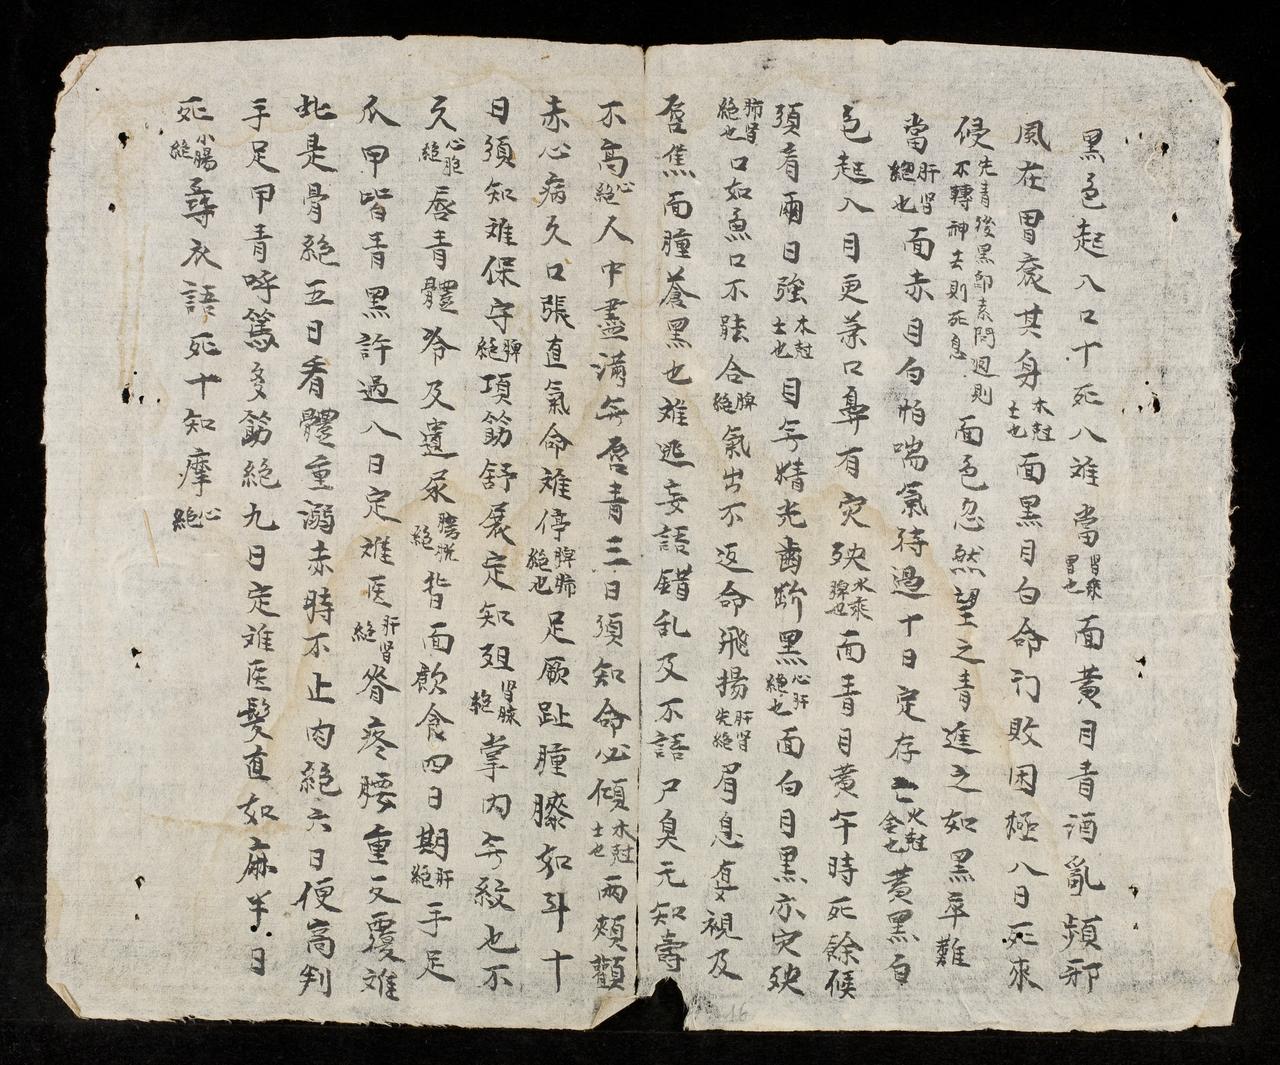 黑色起入口十死八难當腎乘胃也面黃目青酒亂頻邪
風在胃衮其身木尅土也面黑目白命门敗困極八日死來
侵先青後黑即素問廻則不轉神去則死息面色忽然望之青進之如黑卒難
當肝腎絕也面赤目白怕喘氣待過十日定存亡火尅金也黄黑白
色起入目更兼口鼻有灾殃水乘脾也面青目黄午時死餘候
須看兩日強木尅土也目无精光齒断黑心肝絕也面白目黑亦灾殃
肺腎絕也口如魚口不能合脾絕氣出不返命飛揚肝腎先絕眉息直視及
唇焦面腫蒼黑也难逃妄語錯乱及不語尸臭元知壽
不高心絕人中盡滿无唇青三日須知命必傾木尅土也兩頰顴
赤心病久口張直氣命难停脾肺絕也足厥趾腫膝如斗十
日須知难保守脾絕項筋舒展定知殂腎膀絕掌内无紋也不
久心胞絕唇青體冷及遺尿膀胱絕背面飲食四日期肝絕手足
爪甲皆青黑許過八日定难医肝腎絕脊疼腰重反覆难
此是骨絕五日看體重溺赤時不止肉絕六日便高判
手足甲青呼罵多筋絕九日定难医髮直如麻半日
死小腸絕尋衣語死十知摩心絕